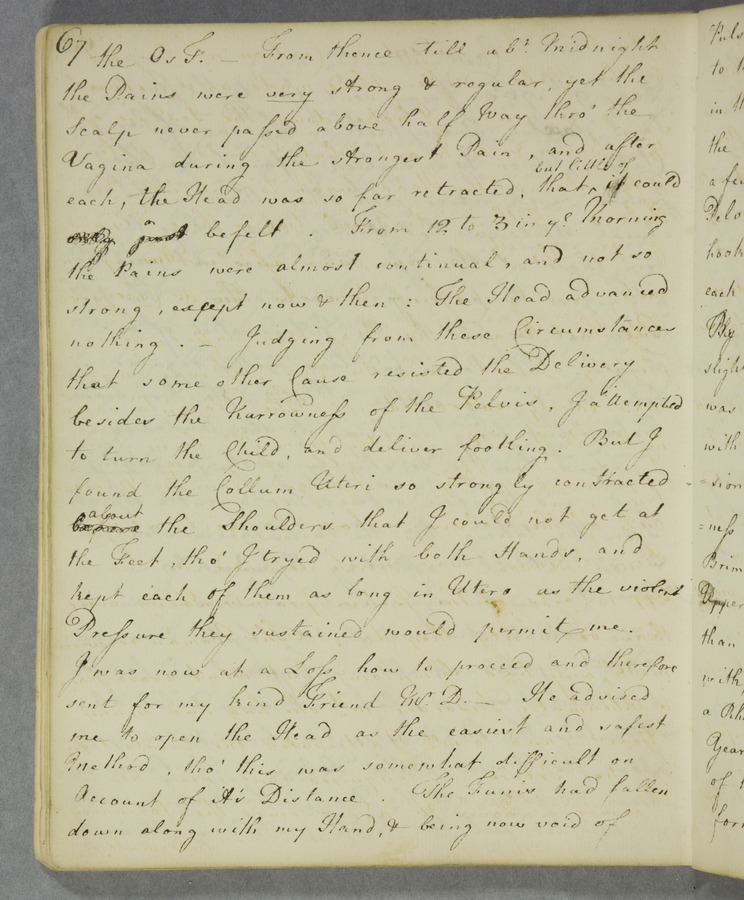 67
the Os F. — From thence till abt. Midnight
the Pains were very strong & regular, yet the
Scalp never passed above half Way thro' the
Vagina during the strongest Pain, and after
but little of
each, the Head was so far retracted, that, it could
befelt. From 12 to 3 in ye. Morning
the Pains were almost continual, and not so
strong, except now & then: The Head advanced
nothing. — Judging from these Circumstances
that some other Cause resisted the Delivery
besides the Narrowness of the Pelvis, I attempted
to turn the Child, and deliver footling. But I
found the Collum Uteri so strongly contracted
about
the Shoulders that I could not get at
the Feet, tho' I tryed with both Hands, and
kept each of them as long in Utero as the violent
Pressure they sustained would permit me.
I was now at a Loss how to proceed and therefore
sent for my kind Friend D. — He advised
me to open the Head as the easiest and safest
Method, tho' this was somewhat difficult on
Account of it's Distance. The Funis had fallen
down along with my Hand, & being now void of
Puls
to
in
the
a fe
Pelv
hook
each
By
sligh
was
with
=sion
=ness
Brim
Upper
than
with
a
Year
of
for